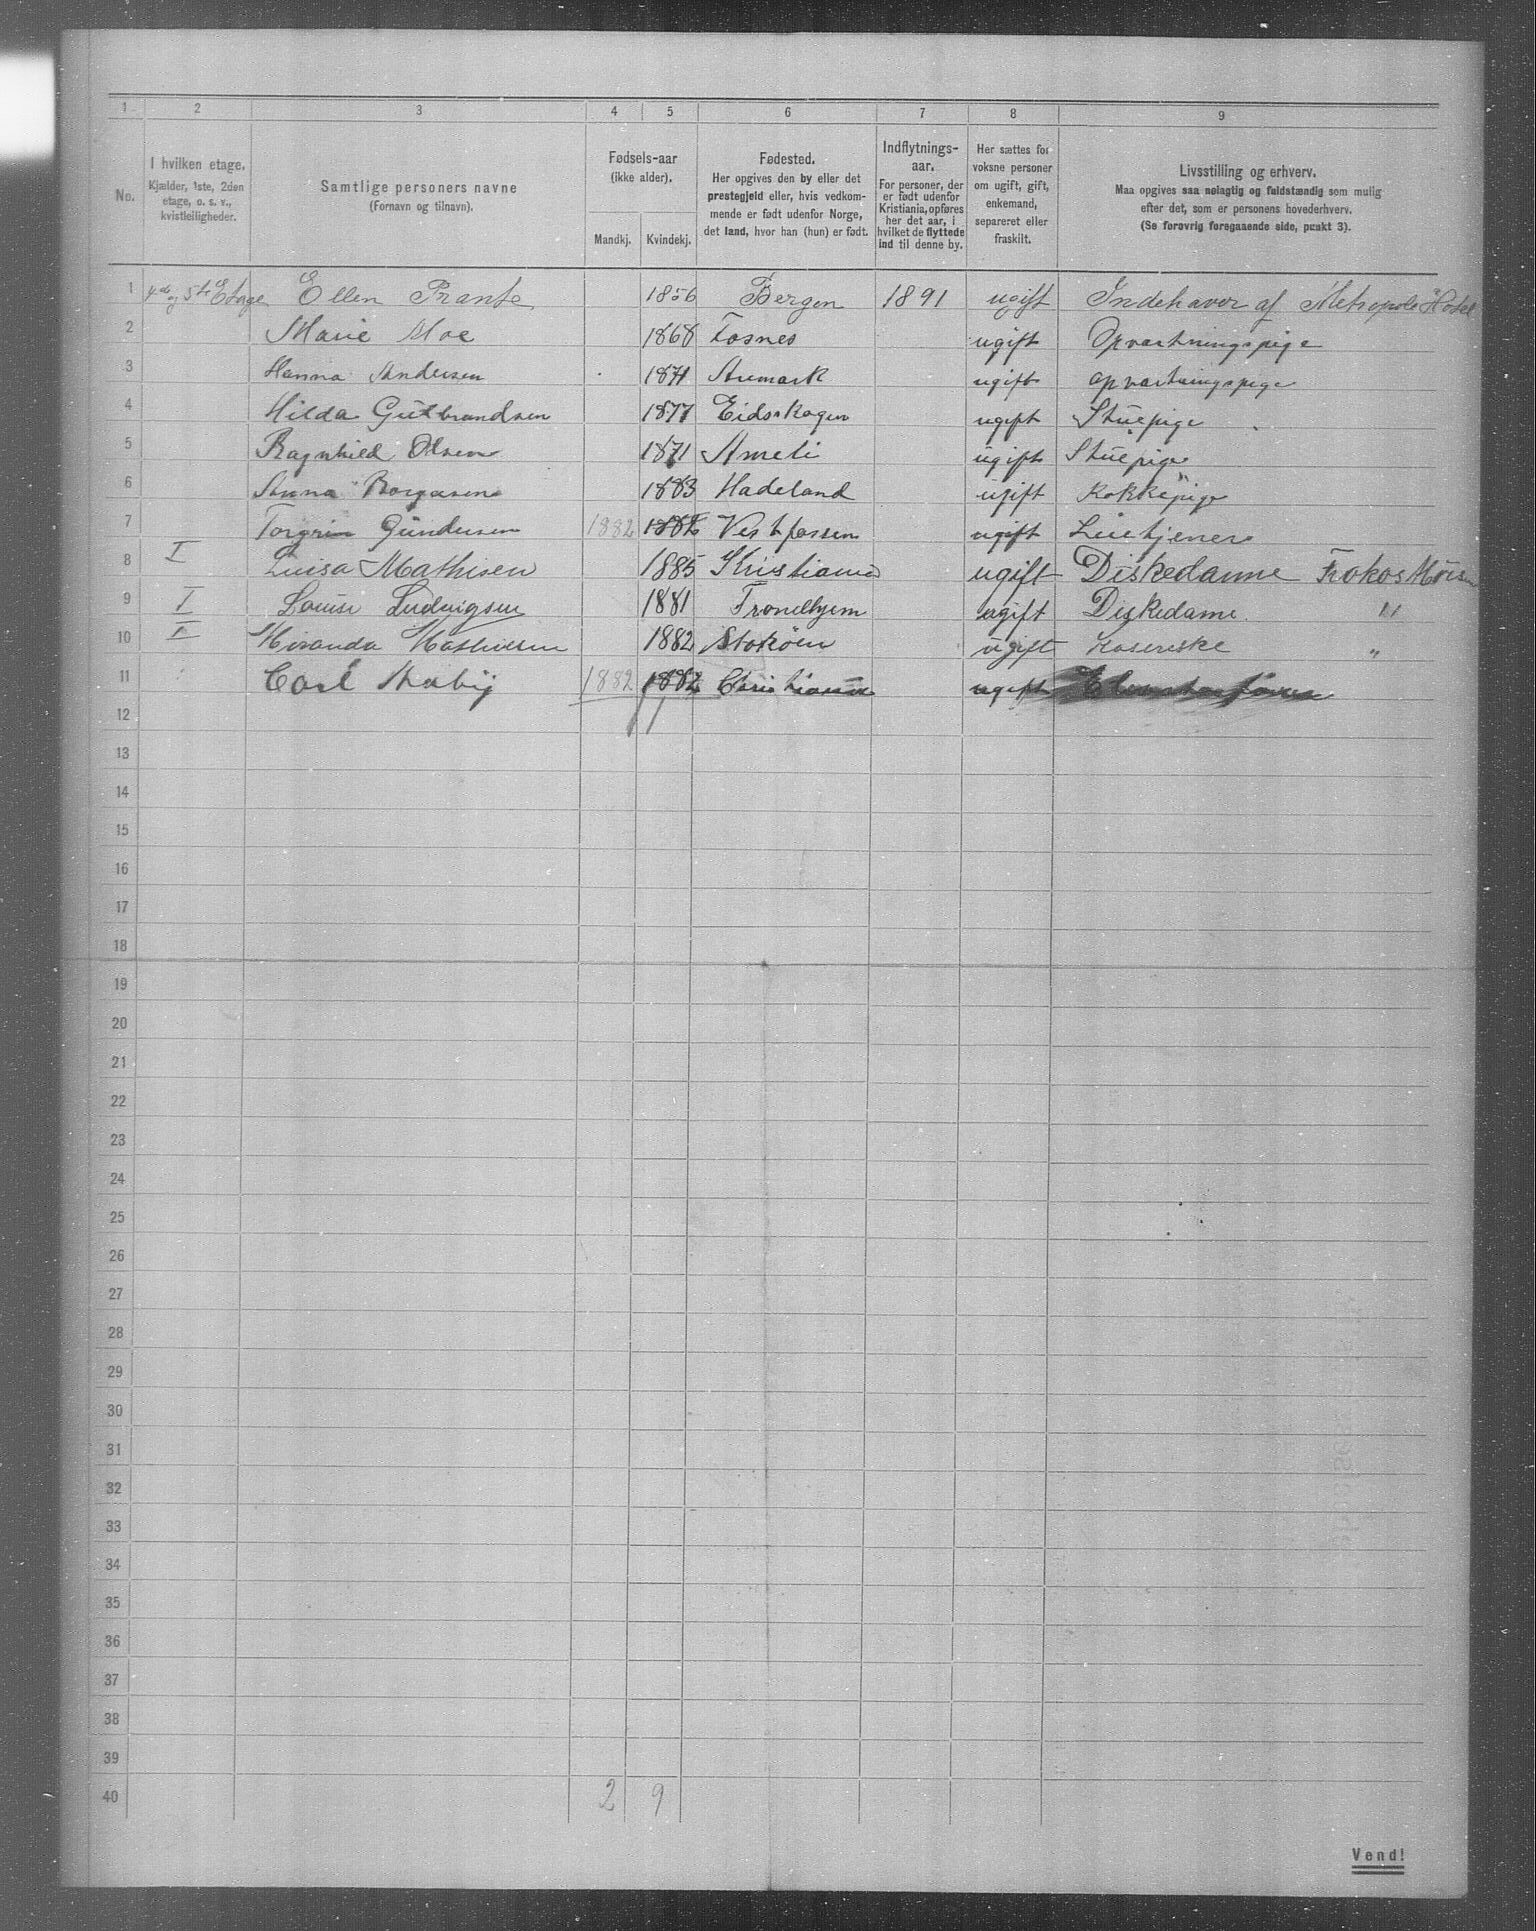 1 2 3 4 5 6 7 8 9
No.
I hvilken etage.
Kjælder, 1ste, 2den
etage, o. s. v.,
kvistleiligheder.
Samtlige personers navne
(Fornavn og tilnavn).
Fødsels-aar
(ikke alder).
Mandkj. Kvindekj.
Fødested.
Her opgives den by eller det
prestegjeld eller, hvis vedkom-
mende er født udenfor Norge,
det land, hvor han (hun) er født.
Indflytnings-
aar.
For personer, der
er født udenfor
Kristiania, opføres
her det aar, i
hvilket de flyttede
ind til denne by.
Her sættes for
voksne personer
om ugift, gift,
enkemand,
separeret eller
fraskilt.
Livsstilling og erhverv.
Maa opgives saa nøiagtig og fuldstændig som mulig
efter det, som er personens hovederhverv.
(Se forøvrig foregaaende side, punkt 3).
1 4de og 5te Etage Ellen Prante 1856 Bergen 1891 ugift Indehaver af Metropole Hotel
2 Marie Moe 1868 Fosnes ugift Opvartningspige
3 Hanna Andersen 1871 Aremark ugift opvartningspige
4 Hilda Gutbrandsen 1877 Eidskogen ugift Stuepige
5 Ragnhild Olsen 1871 Ameli ugift Stuepige
6 Anna Borgersen 1883 Hadeland ugift Kokkepige
7 Torgrim Gundersen 1882 1882 Vestfossen ugift
8 I Luisa Mathisen 1885 Kristiania ugift Diskedamme Frokost
9 I Louise Ludvigsen 1881 Trondhjem ugift Diskedame "
10 II Mathisen 1882 Stokøen ugift Kasererske "
11 Carl 1882 1882 Christiania ugift
12
13
14
15
16
17
18
19
20
21
22
23
24
25
26
27
28
29
30
31
32
33
34
35
36
37
38
39
40 2 9
Vend!